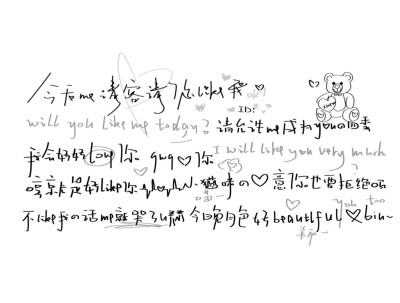 今天me请客请你like我
ID:
will you like me today? 请允许me成为you的四季
我会好好love你 gwg 你 I will like you very much
嘎 就是好like你 小猫咪の 意 你也要拒绝吗
you too
不like我の话me就哭了 今晚月色好beautiful biu~